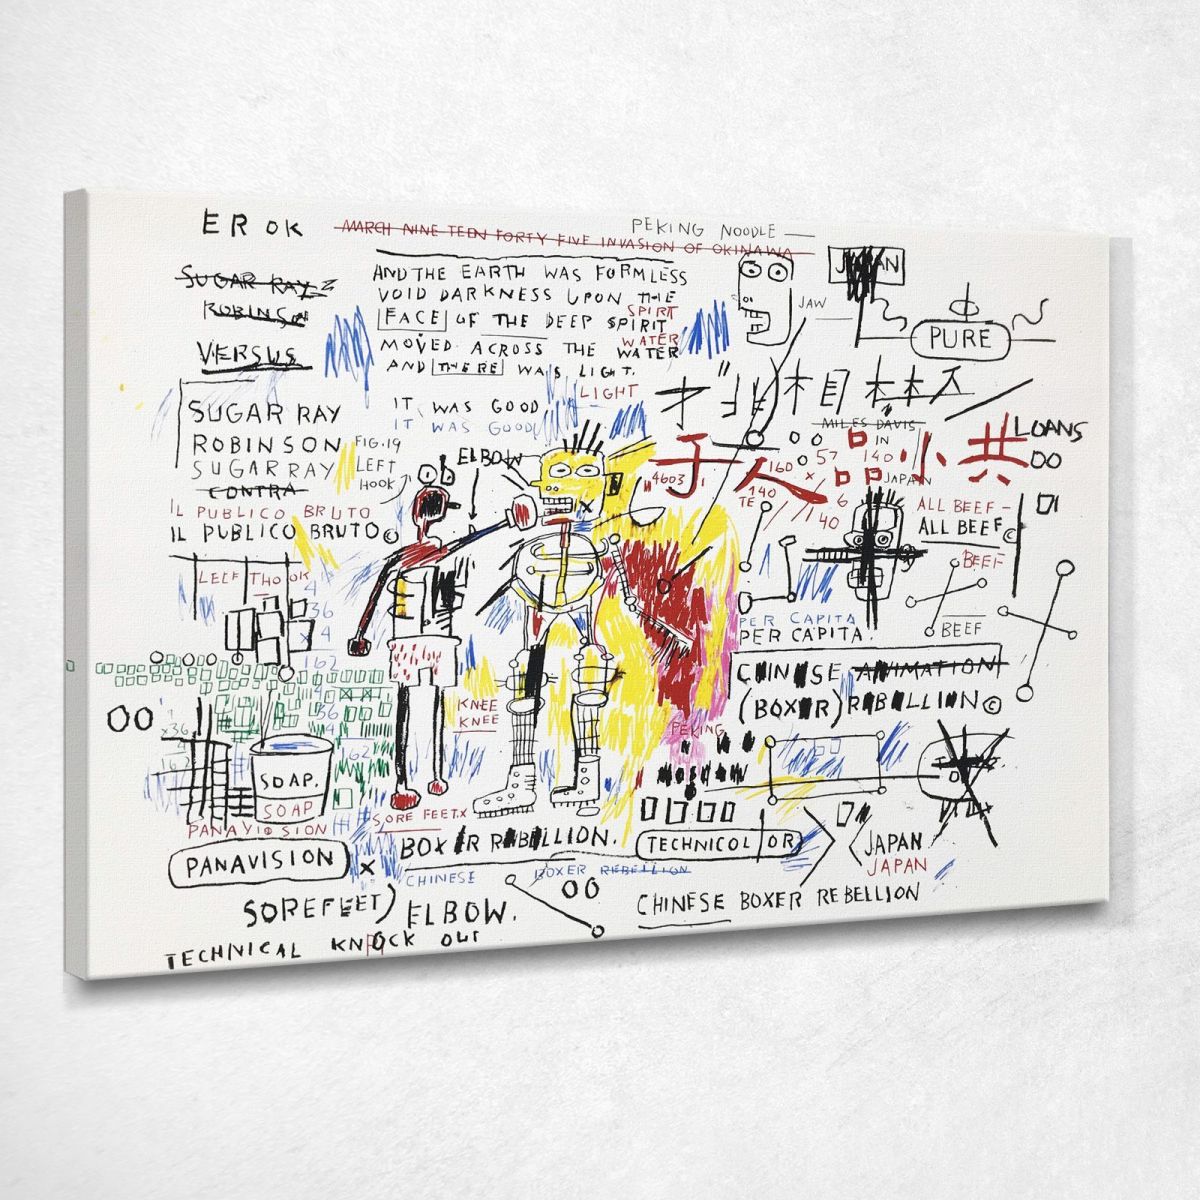 ER OK
MARCH NINE TEEN FORTY FIVE INVASION OF OKINAWA
PEKING NOODLE —
SUGAR RAY
ROBINSON
VERSUS
AND THE EARTH WAS FORMLESS
VOID DARKNESS UPON THE
SPIRT
FACE OF THE DEEP SPIRIT
WATER
MOVED ACROSS THE WATER
AND THERE WAS LIGHT.
LIGHT
IT WAS GOOD
IT WAS GOOD
JAW
PURE
SUGAR RAY
ROBINSON
SUGAR RAY
CONTRA
FIG.19
LEFT
HOOK
ELBOW
IL PUBLICO BRUTO
IL PUBLICO BRUTO©
LEEF THO OK
MILES DAVIS
IN
JAPAN
子人品小共
LOANS
"4603"
160
57
140
140
TE
6
140
ALL BEEF -
ALL BEEF©
BEEF
BEEF
PER CAPITA
PER CAPITA.
CHINESE ANIMATION
(BOXER) REBELLION ©
4
36
x 4
162
x36
4
162
4
56
162
KNEE
KNEE
PEKING
MOSCOW
SOAP.
SOAP
PANAVISION
PANAVISION
x
SORE FEET.X
BOXER REBELLION.
CHINESE
BOXER REBELLION
TECHNICOLOR
JAPAN
JAPAN
SOREFEET) ELBOW.
CHINESE BOXER REBELLION
TECHNICAL KNOCK OUT